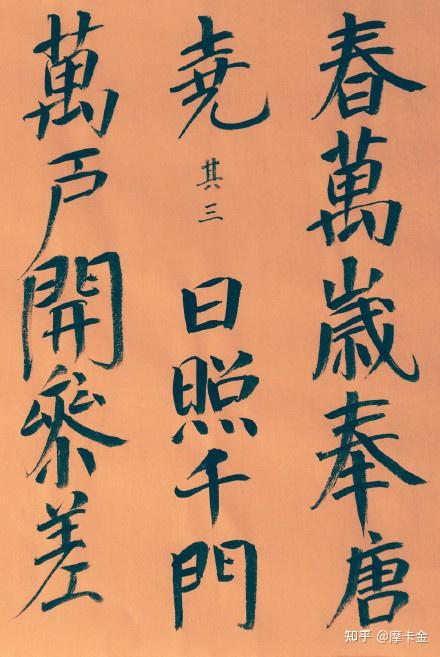 春萬歲奉唐
堯 其三 日照千門
萬戶開參差
知乎 @摩卡金